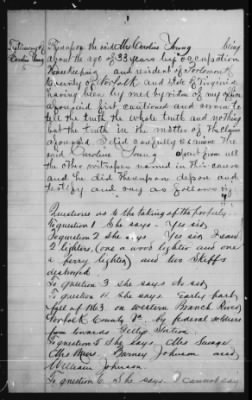 3
Testimony of
Caroline Young
Thereupon the said Mrs Caroline Young being
about the age of 33 years by occupation
Housekeeping and resident of
County of Norfolk and State of Virginia
having been by me by virtue of my office
aforesaid first cautioned and sworn to
tell the truth the whole truth and nothing
but the truth in the matter of the claim
aforesaid I did carefully examine the
said Caroline Young apart from all
the other witnesses named in this cause
and he did thereupon depose and
testify and say as follows viz
Questions as to the taking of the property.
To question 1 She says. Yes sir,
To question 2 She says Yes sir, I saw
2 lighters, (one a wood lighter and one
a ferry lighter) and two Skiffs
destroyed.
To question 3 she says No sir
To question 4 She says Early part
fall of 1863 on western Branch River
Norfolk County Va. by federal soldiers
from towards Station.
To question 5 She says Mrs Savage
Mrs Barney Johnson and
William Johnson.
To question 6 She says. I cannot say